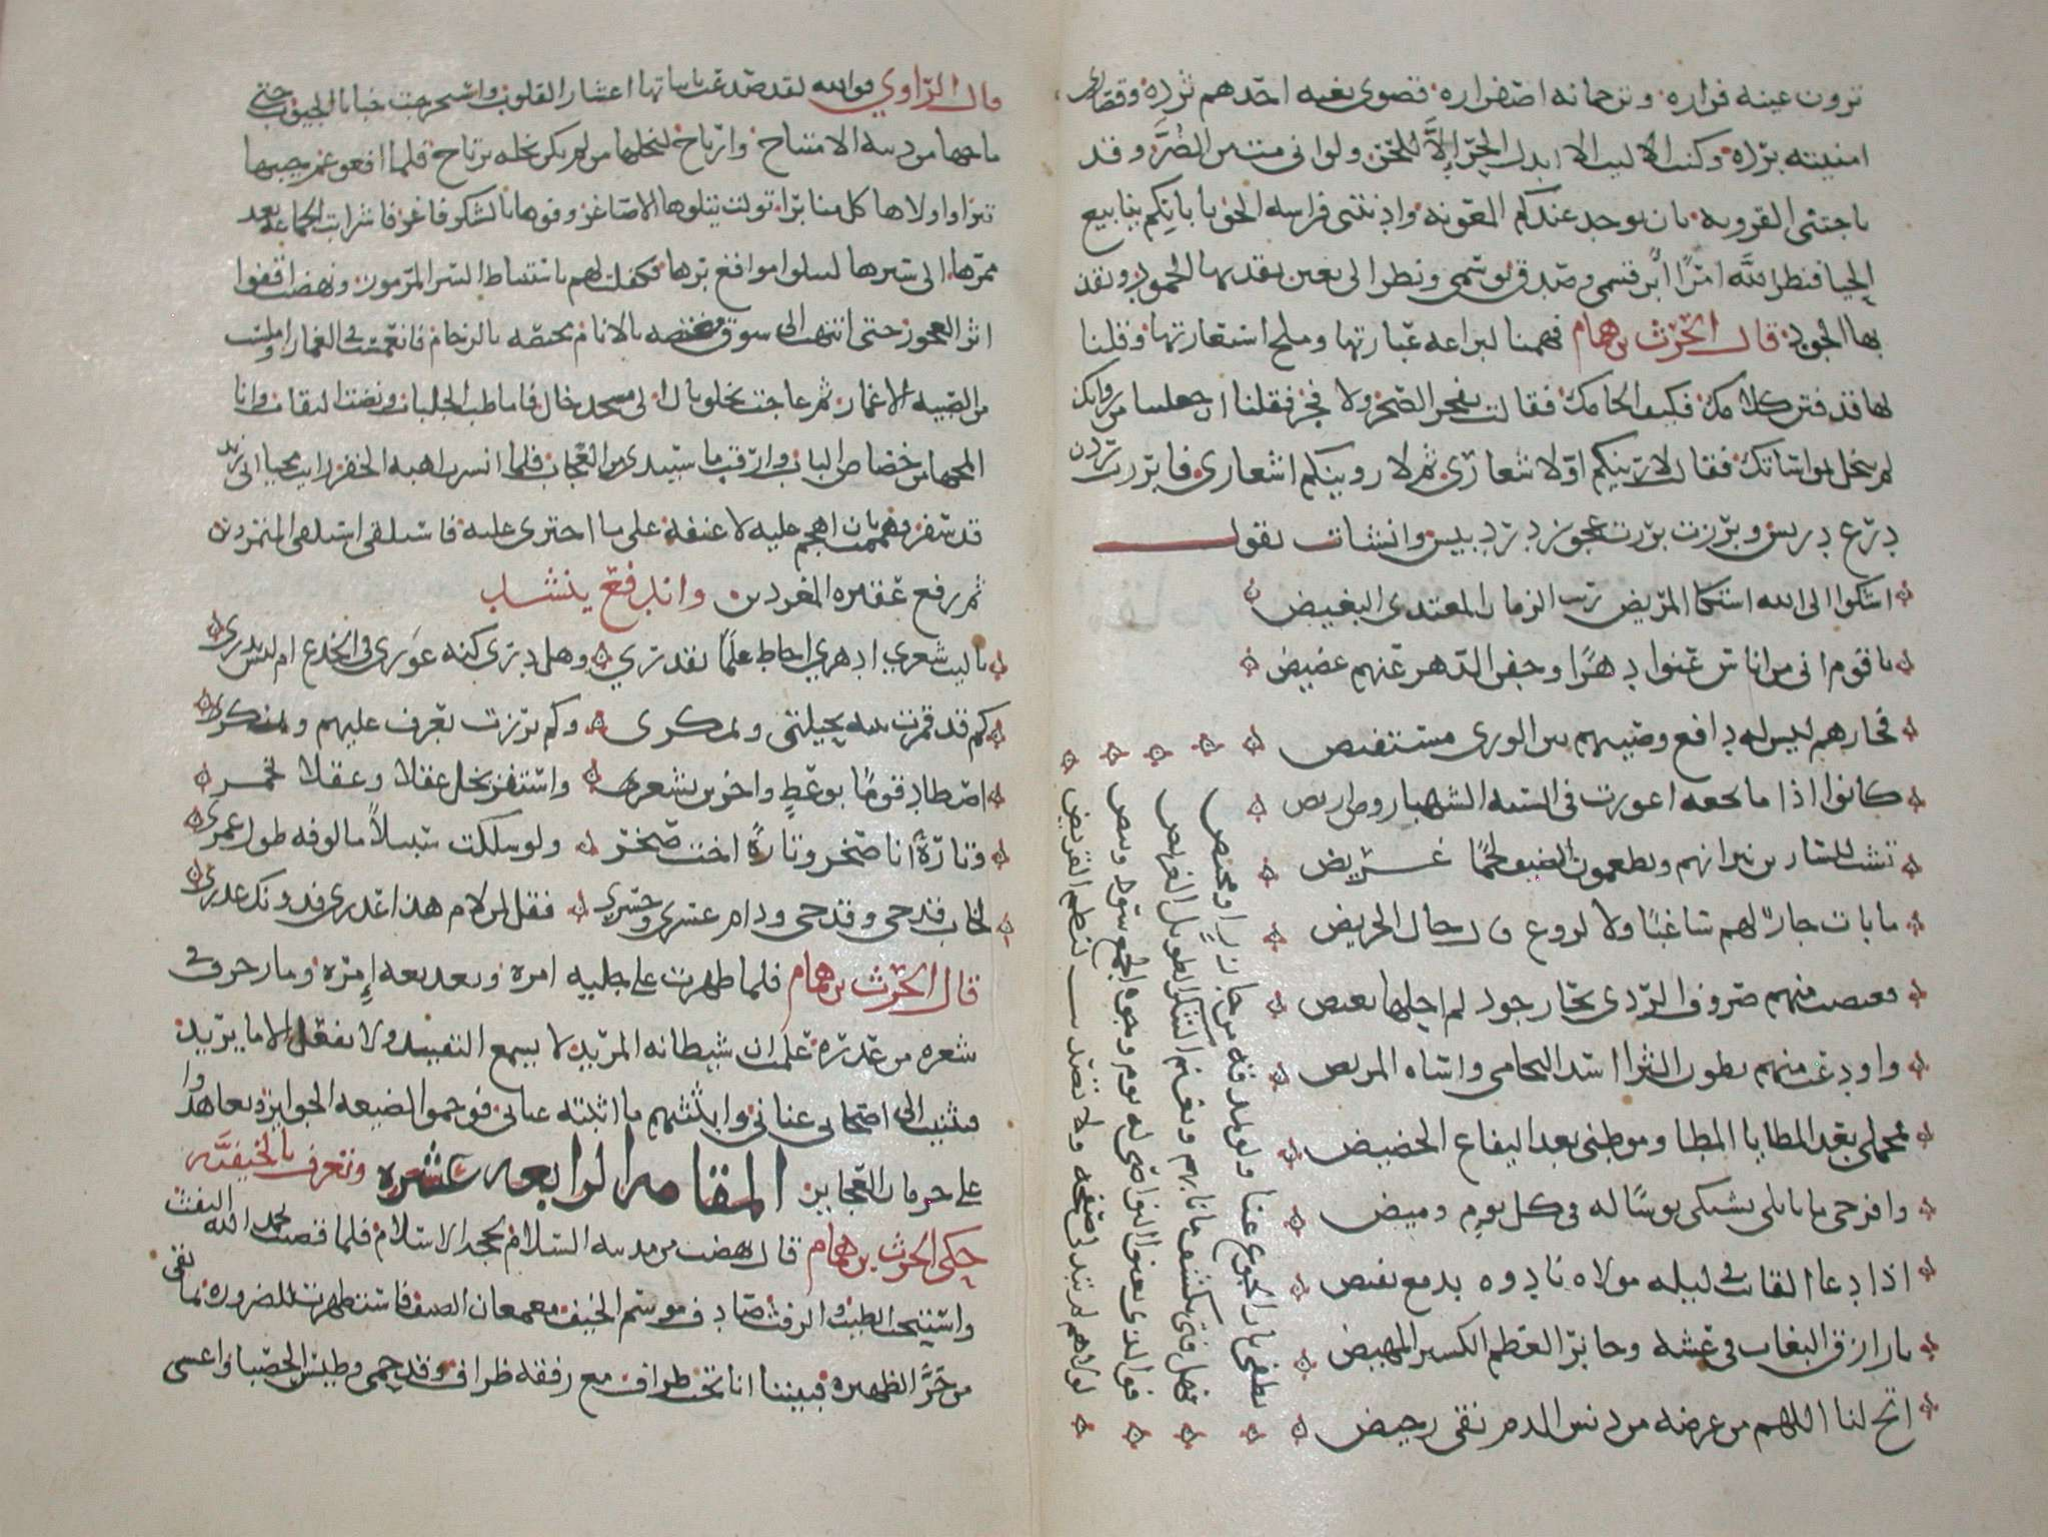 ترون عينه فراره وترجمانه اصفراره قصوى بغيه احدهم ثرده وقصارى
امنيته برده وكنت اليت الا ابذل الحر الا للحر ولو اني مت من الضر وقد
ناجتني القرونه بان توجد عندكم المعونه واذنتني فراسه الحوبا بانكم ينابيع
الحبا فنظر الله امرا ابر قسمي وصدق توسمي ونظر الي بعين يقذيها الجمود ويقذ
بها الجود قال الحرث بن همام فهمنا لبراعه عبارتها وملح استعارتها وقلنا
لها قد فتن كلامك فكيف الحامك فقالت يفجر الصخر ولا فخر فقلنا ان جعلتنا من رواتك
لم نبخل بمواساتك فقالت لارينكم اولا شعاري ثم لا روينكم اشعاري فابرزت ردن
درع دريس وبرزت برزة عجوز دردبيس وانشات تقول
اشكوا الى الله اشتكا المريض ريب الزمان المعتدى البغيض
يا قوم اني من اناس غنوا دهرا وجفن الدهر عنهم غضيض
فخارهم ليس له دافع وصيتهم بين الورى مستفيض
كانوا اذا ما نجعه اعوزت في السنه الشهبا روض اريض
تشب للسارين نيرانهم ويطعمون الضيف لحما غريض
ما بات جار لهم ساغبا ولا لروع قال حال الجريض
فغيضت منهم صروف الردى بحار جود لم نخلها تغيض
واودعت منهم بطون الثرا اسد التحامى واساه المريض
فمحملي بعد المطايا المطا وموطنى بعد اليفاع الحضيض
وافرخى ما تاتلى تشتكى بوسا له في كل يوم وميض
اذا دعا القانت في ليله مولاه نادوه بدمع يفيض
يا رازق النعاب في عشه وجابر العظم الكسير المهيض
اتح لنا اللهم من عرضه من دنس الذم نقى رحيض
يطفى نار الجوع عنا ولو بمذقه من حازر او مخيض
فهل فتى يكشف ما نابهم ويغنم الشكر الطويل العريض
فوالذى تعنو النواصى له يوم وجوه الجمع سود وبيض
لولاهم لم تبد لي صفحه ولا تصديت لنظم القريض
قال الراوي فوالله لقد صدعت بابياتها اعشار القلوب واستخرجت خبايا الجيوب حتى
ماحها من دينه الامتناح وارتاح لنحلها من لم نكن نخله يرتاح فلما افعوعم جيبها
تبرا واولاها كل منا برا تولت يتلوها الاصاغر وفوها بالشكر فاغر فاشرابت الجماعه بعد
ممرها الى سبرها لتبلوا مواقع برها فكفلت لهم باستنباط السر المرموز ونهضت اقفوا
اثر العجوز حتى انتهت الى سوق مغتصه بالانام مختصه بالزحام فانغمست في الغمار واملست
من الصبيه الاغمار ثم عاجت بخلو بال الى مسجد خال فاماطت الجلباب ونضت النقاب وانا
المحها من خصاص الباب وارقب ما ستبدى من العجاب فلما انسرت اهبه الخفر رايت محيا ابى زيد
قد سفر فهممت بان اهجم عليه لا عنفه على ما اجترى عليه فاسلنقى اسلنقا المتمردين
ثم رفع عقيره المغردين واندفع ينشد
يا ليت شعري ادهري احاط علما بقدري وهل درى كنه غورى في الخدع ام ليس يدرى
كم قد قمرت بنيه بحيلتى وبمكرى وكم برزت بعرف عليهم وبنكر
اصطاد قوما بوعظ واخرين بشعر واستفز بخل عقلا وعقلا بخمر
وتارة انا صخر وتارة اخت صخر ولو سلكت سبيلا مالوفه طول عمرى
لخاب قدحى وقدحى ودام عسرى وخسرى فقل لمن لام هذا عذرى فدونك عذرى
قال الحرث بن همام فلما ظهرت على جليه امره وبديعه امره وما زخرف في
شعره من عذره علمت ان شيطانه المريد لا يسمع التفنيد ولا يفعل الا ما يريد
فثنيت الى اصحابى عناني وابثثتهم ما اثبته عيانى فوجموا لضيعه الجوايز وتعاهدوا
على حرمان العجايز المقامه الرابعه عشره وتعرف بالخيفيه
حكى الحرث بن همام قال نهضت من مدينه السلام لحجه الاسلام فلما قضيت بحمد الله التفث
واستبحت الطيب والرفث صادف موسم الخيف معمعان الصيف فاستظهرت للضروره بما يقى
من حر الظهيره فبينما انا تحت طراف مع رفقه ظراف وقد حمى وطيس الحصبا واعشى